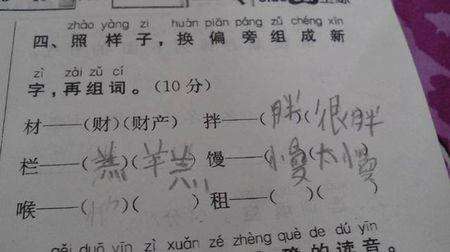 zhào yàng zi huàn piān páng zǔ chéng xīn
四、照样子,换偏旁组成新
zì zài zǔ cí
字,再组词。(10分)
材——(财)(财产) 拌——(胖)(很胖
栏——( )(羊羔) 馒——(慢)(太慢
喉——( )( ) 租——( )( )
duō yīn zì xuǎn zé zhèng què de dú yīn
确的读音。